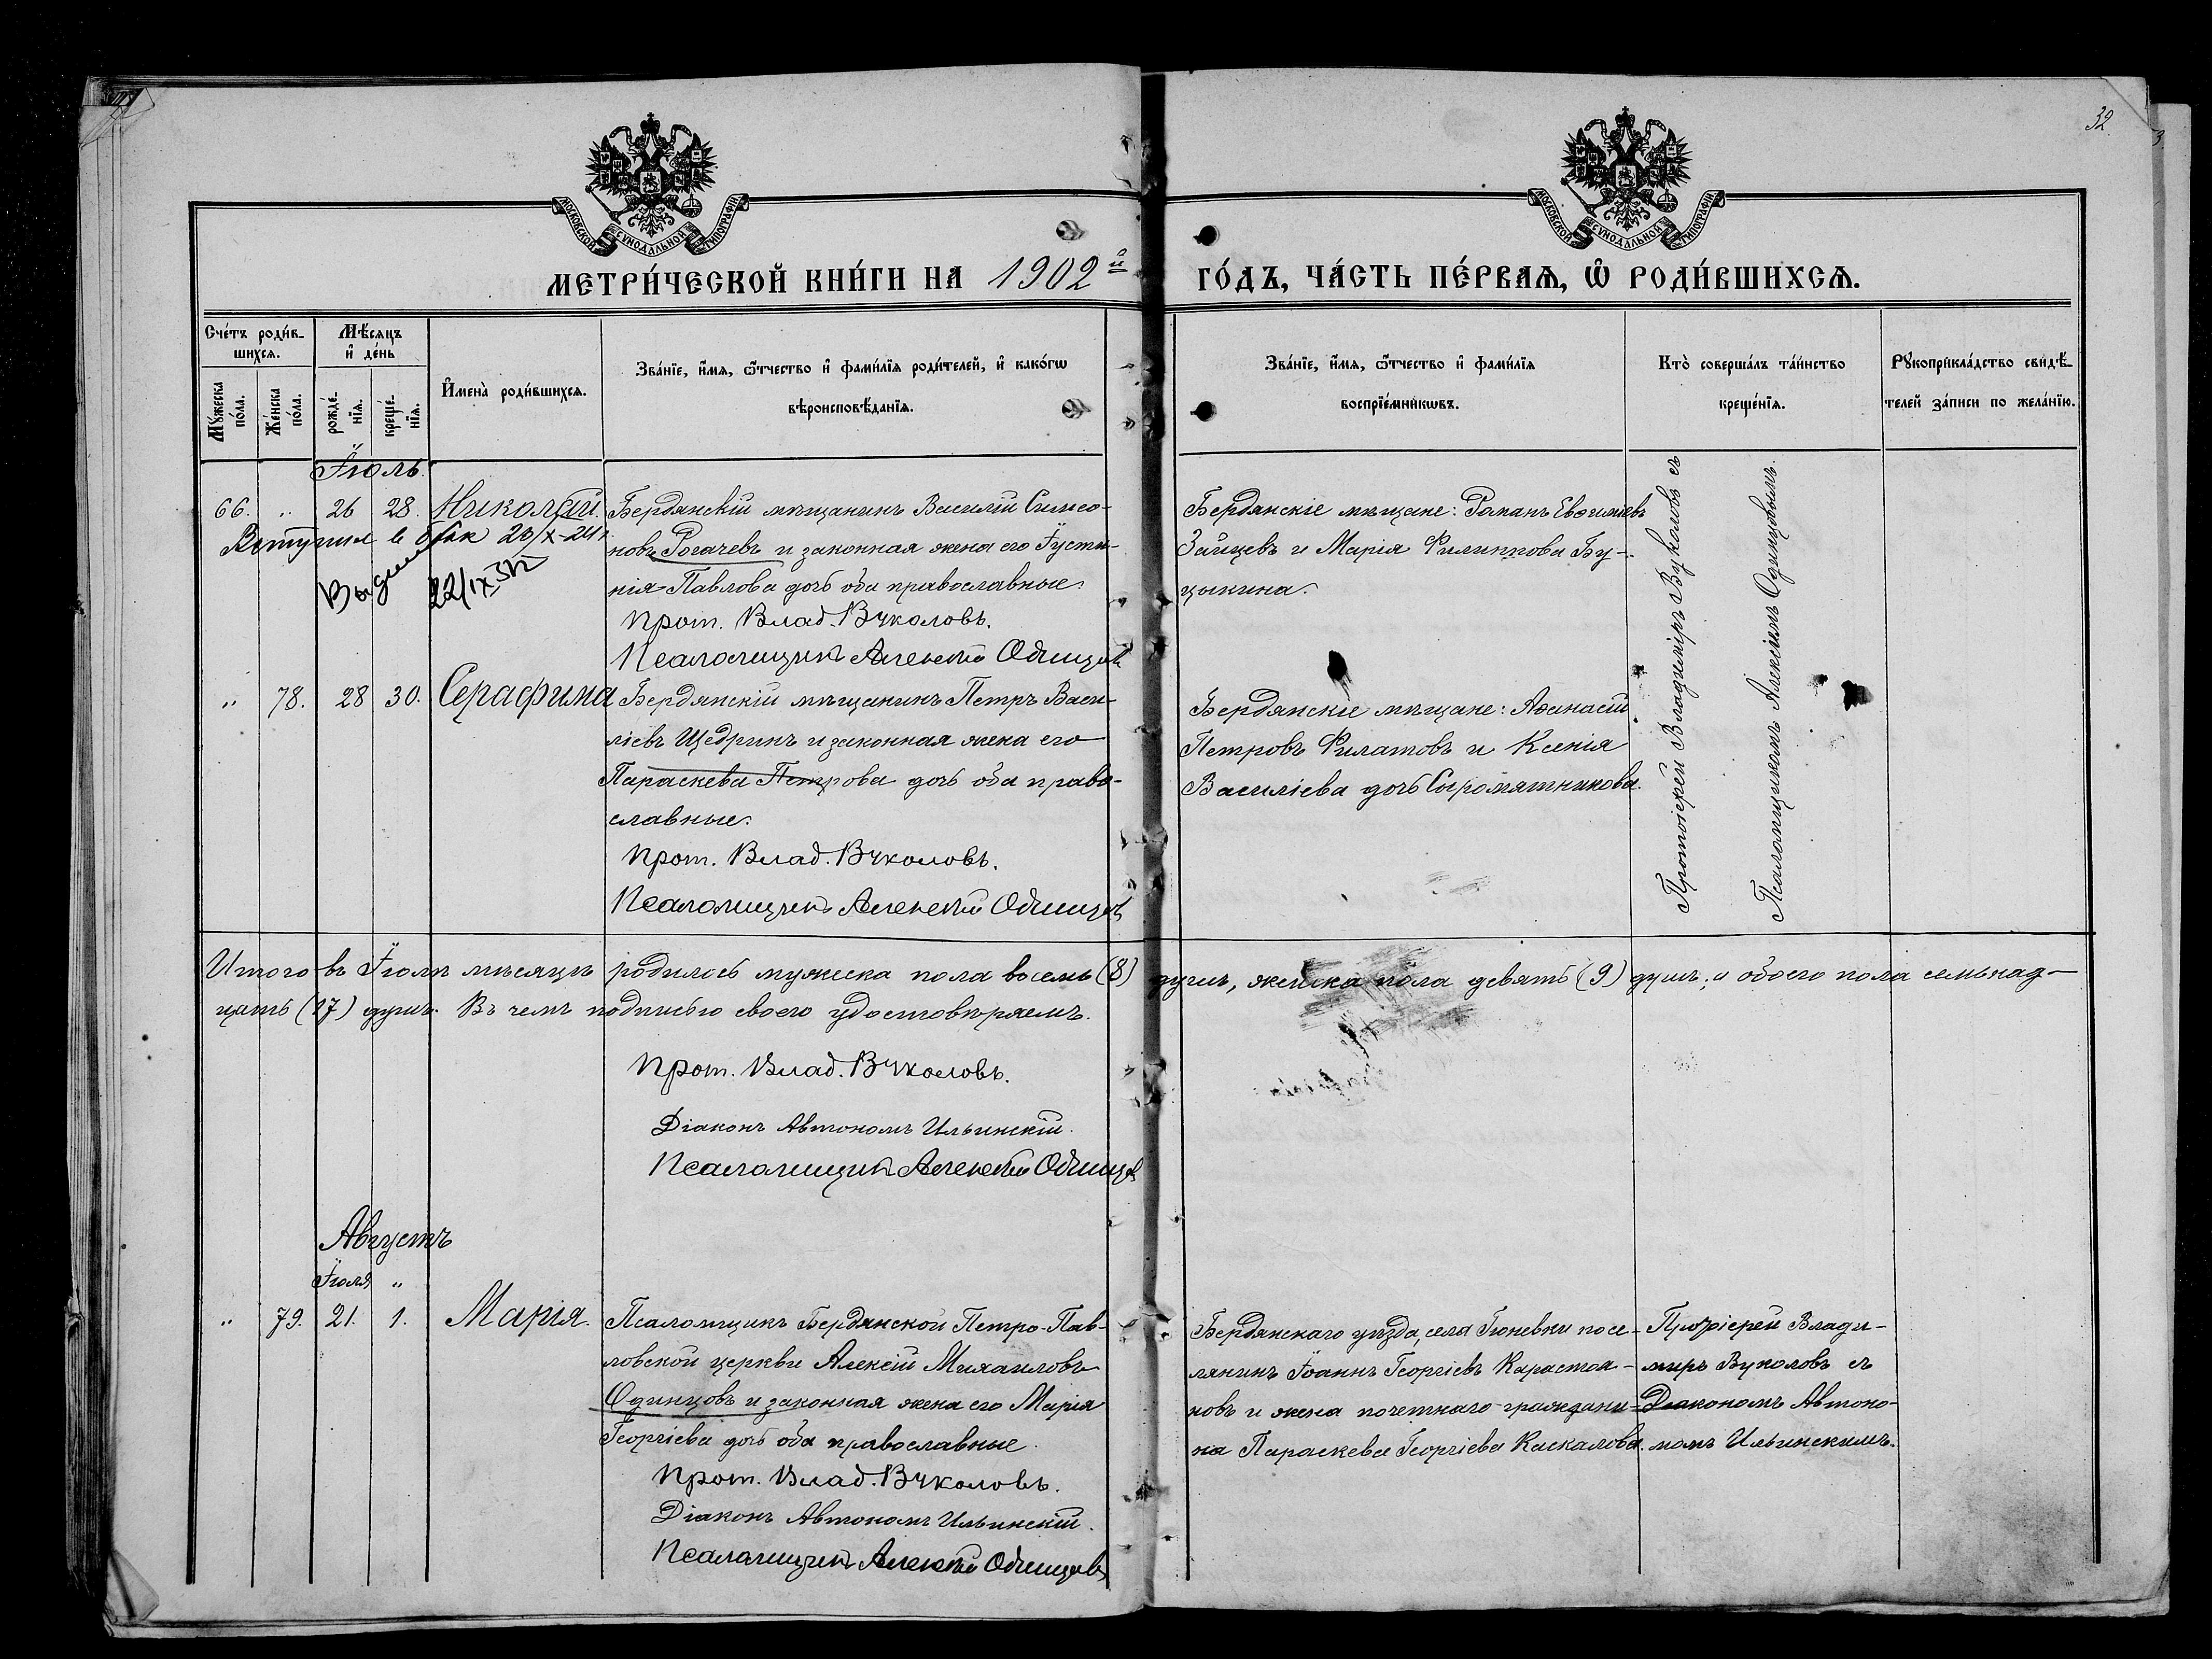 32.
МОСКОВСКОЙ СУНОДАЛЬНОЙ ТИПОГРАФІИ
МОСКОВСКОЙ СУНОДАЛЬНОЙ ТИПОГРАФІИ
МЕТРИ́ЧЕСКОЙ КНИ́ГИ НА 1902й ГО́ДЪ, ЧА́СТЬ ПЕ́РВАѦ, Ѡ РОДИ́ВШИХСѦ.
Сче́тъ роди́в-
шихсѧ.
Мꙋ́жеска
по́ла.
Же́нска
по́ла.
Мѣ́сѧцъ
и҆ де́нь
рожде́-
нїѧ.
креще́-
нїѧ.
И҆мена̀ роди́вшихсѧ.
Зва́нїе, и҆́мѧ, ѻ҆́тчество и҆ фами́лїѧ роди́телей, и҆ како́гѡ
вѣроисповѣ́данїѧ.
Зва́нїе, и҆́мѧ, ѻ҆́тчество и҆ фами́лїѧ
воспрїе́мникѡвъ.
Кто̀ соверша́лъ та́инство
креще́нїѧ.
Рꙋкоприкла́дство свидѣ́-
телей за́писи по жела́нїю.
Іюль.
66. „ 26 28. Николай.
Бердянскій мѣщанинъ Василій Симео-
новъ Рогачевъ и законная жена его Іусти-
нія Павлова дочь оба православные.
Прот. Влад. Вуколовъ.
Псаломщикъ Алексѣй Одинцовъ
Вступил в брак 23/X-24г.
22/IX
Бердянскіе мѣщане: Романъ Евѳиміевъ
Зайцевъ и Марія Филиппова Бу-
цыкина.
Протоіерей Владиміръ Вуколовъ съ
Псаломщикомъ Алексіемъ Одинцовымъ.
„ 78. 28 30. Серафима
Бердянскій мѣщанинъ Петръ Васи-
ліевъ Щедринъ и законная жена его
Параскева Петрова дочь оба право-
славные.
Прот. Влад. Вуколовъ.
Псаломщикъ Алексѣй Одинцовъ
Бердянскіе мѣщане: Аѳанасій
Петровъ Филатовъ и Ксенія
Василіева дочь Сыромятникова.
Итого въ Іюлѣ мѣсяцѣ родилось мужеска пола восемь (8) душъ, женска пола девять (9) душъ, и обоего пола семьнад-
цать (17) душъ. Въ чемъ подписью своею удостовѣряемъ.
Прот. Влад. Вуколовъ.
Діаконъ Автономъ Ильинскій.
Псаломщикъ Алексѣй Одинцовъ
Августъ
Іюля „
„ 79. 21. 1. Марія.
Псаломщикъ Бердянской Петро-Пав-
ловской церкви Алексій Михаиловъ
Одинцовъ и законная жена его Марія
Георгіева дочь оба православные.
Прот. Влад. Вуколовъ.
Діаконъ Автономъ Ильинскій.
Псаломщикъ Алексѣй Одинцовъ
Бердянскаго уѣзда, села Гюневки посе-
лянинъ Іоаннъ Георгіевъ Карастоя-
новъ и жена почетнаго граждани-
на Параскева Георгіева Каскалова.
Протоіерей Влади-
миръ Вуколовъ съ
Діакономъ Автоно-
момъ Ильинскимъ.